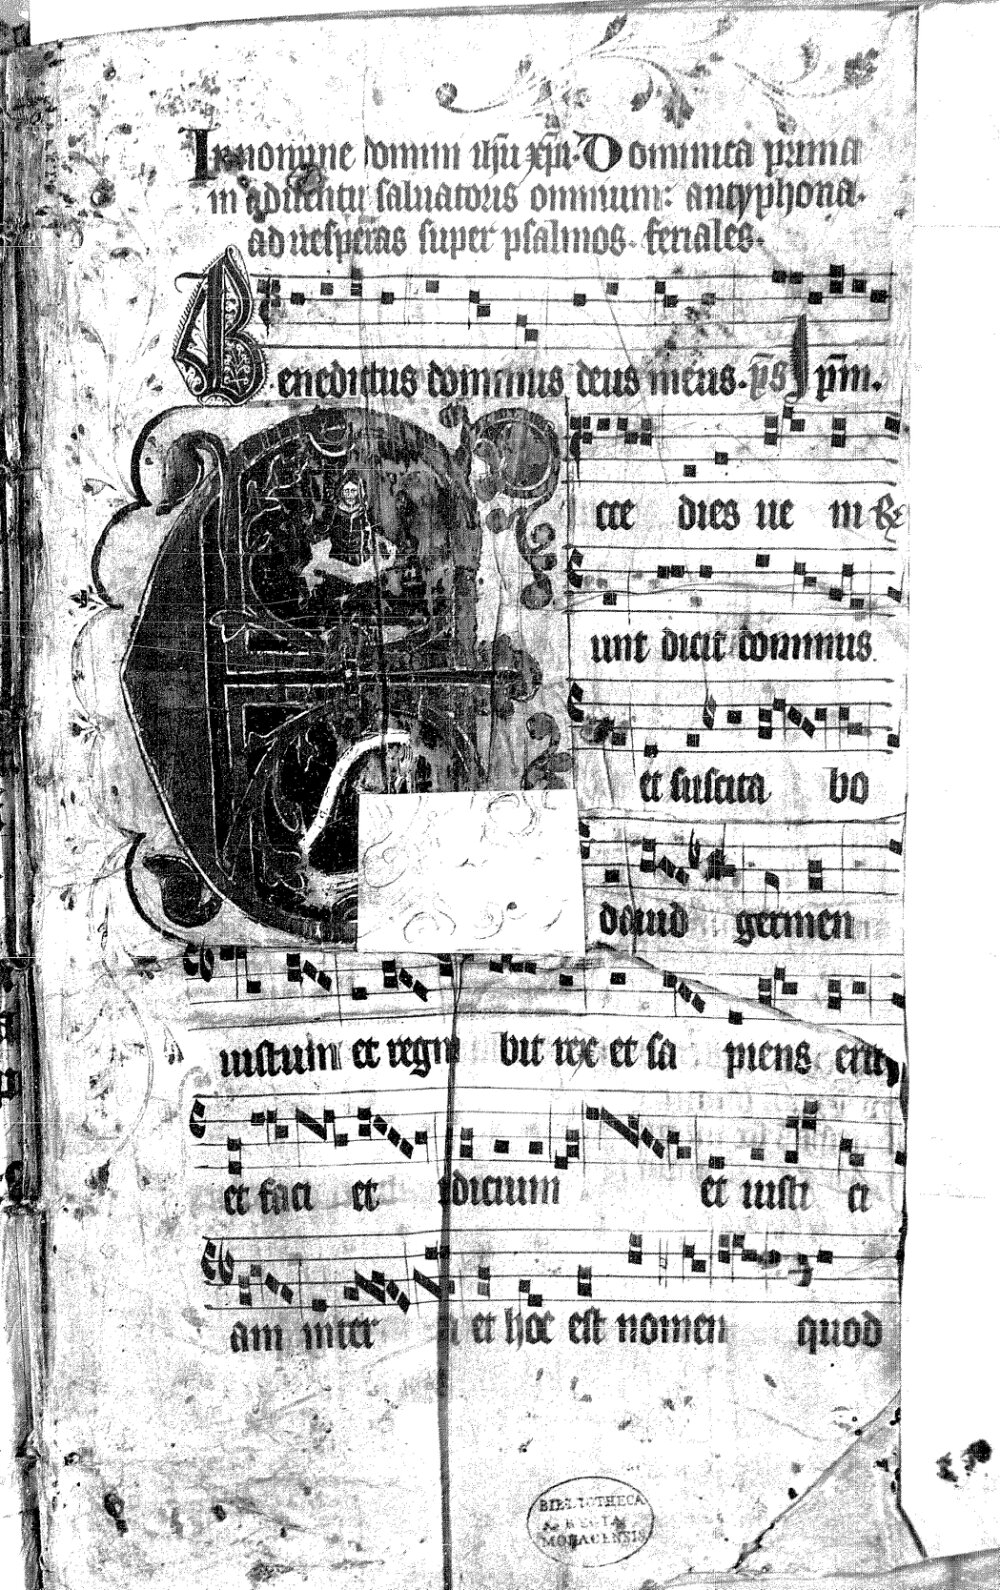 In nomine domini ihu xpi. Dominica prima
in aduentu saluatoris omnium: antyphona.
ad uesperas super psalmos feriales.
Benedictus dominus deus meus. ps ipm.
Ecce dies ue ni
unt dicit dominus
et suscita bo
dauid germen
iustum et regna bit rex et sa piens erit
et faci et iudicium et iusti ci
am inter a et hoc est nomen quod
BIBLIOTHECA
REGIA
MONACENSIS